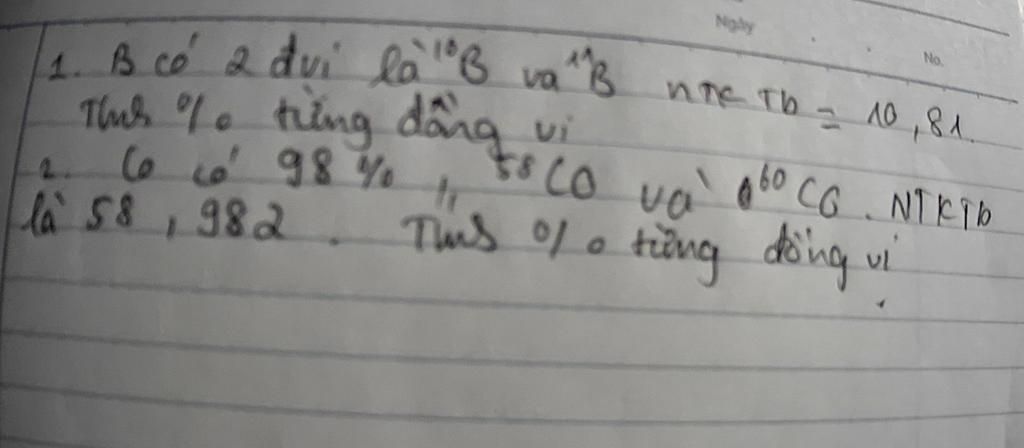 Ngày
No.
1. B có 2 đvi là ¹⁰B và ¹¹B NTK Tb = 10,81.
Tính % từng đồng vị
2. Co có 98%, ⁵⁸CO và ⁶⁰CO. NTKTb
là 58,982. Tính % từng đồng vị